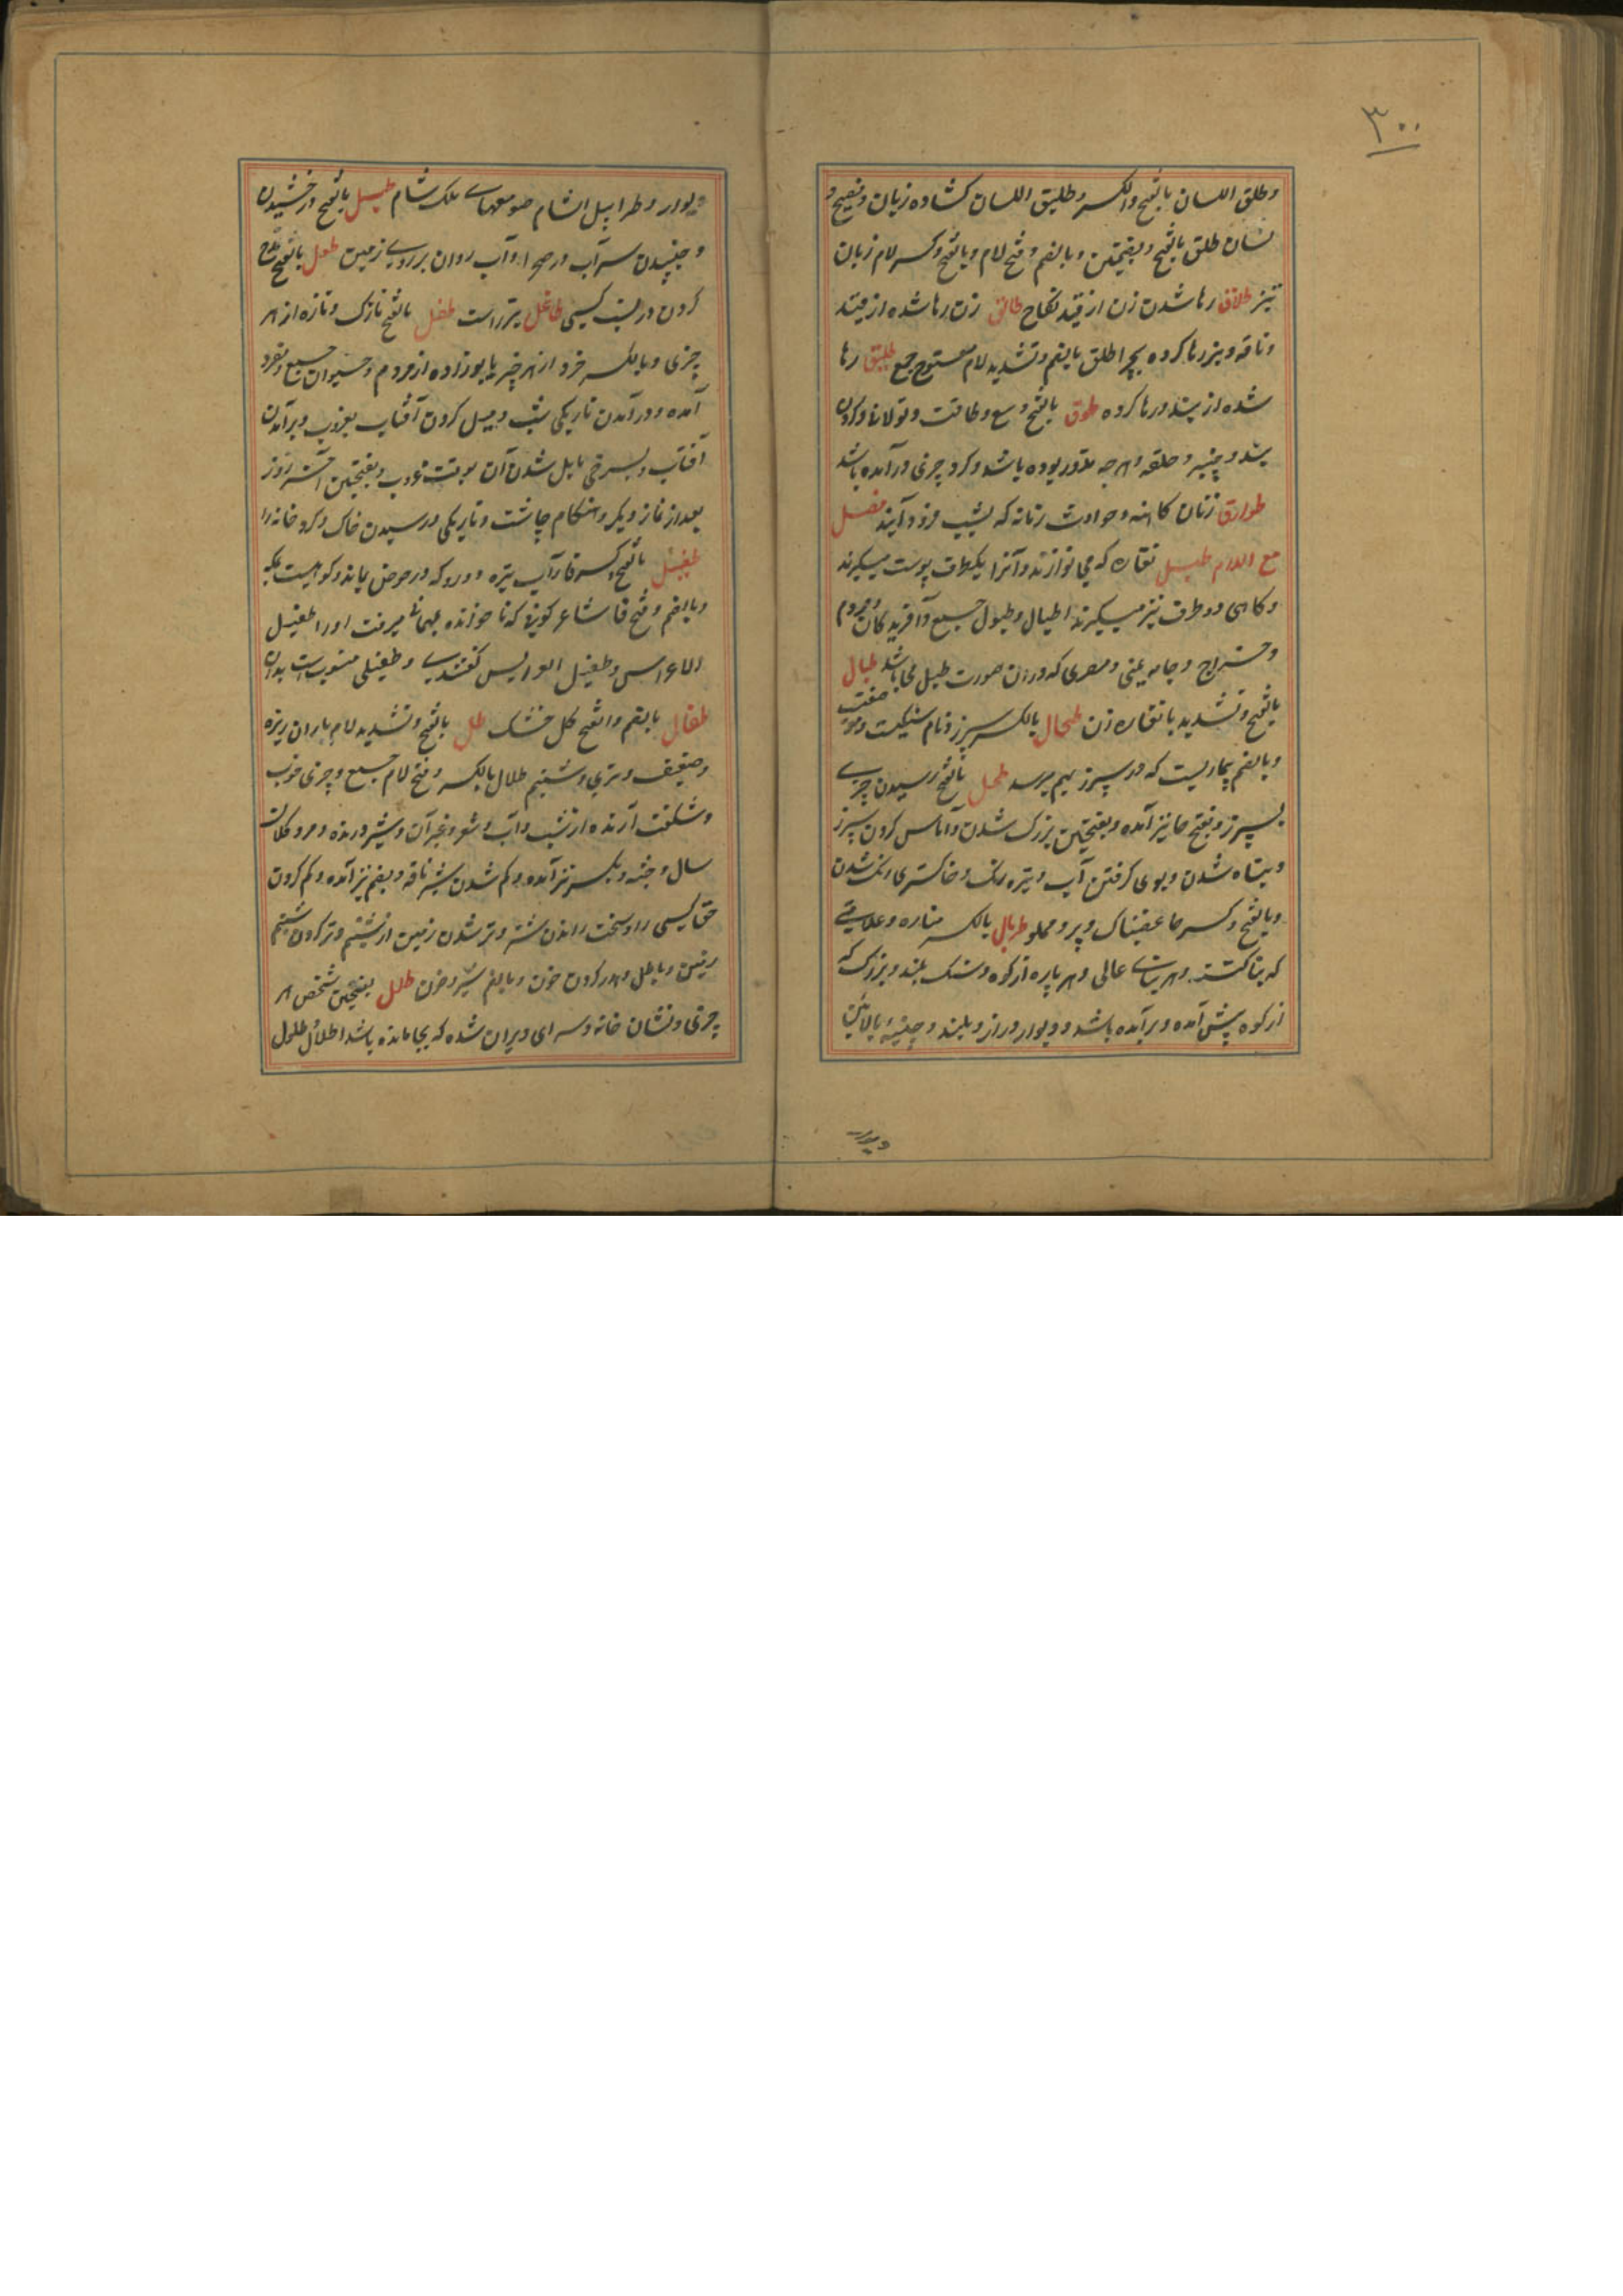 ۳۰۰
وطلق اللسان بالفتح والکسر وطلیق اللسان کشاده زبان وفصیح و
لسان طلق بالفتح وبضمتین وبالضم وفتح لام وبالفتح وکسر لام زبان
تیز طلاق رها شدن زن از قید نکاح طالق زن رها شده از قید
وناقه ونیز رها کرده بچرا طلق بالضم وتشدید لام مفتوح جمع طلیق رها
شده از بند ورها کرده طوق بالفتح وسع وطاقت وتوانا وکردن
بند وچنبر وحلقه وهرچه مدور بوده باشد وکرد چیزی درآمده باشد
طوارق زنان کاهنه وحوادث زمانه که بشب فرود آیند فصل
مع اللام طبل نقاره که می نوازند وآنرا یکطرف پوست میگیرند
وکاهی دو طرف نیز میگیرند اطبال وطبول جمع وآفریدکان ومردم
وخراج وجامه یمنی ومصری که دران صورت طبل می باشد طبال
بالفتح وتشدید با نقاره زن طحال بالکسر سپرز ونام سگیست
وبالضم بیماریست که در سپرز بهم میرسد طحل بالفتح رسیدن چیزی
بسپرز وبفتح حا نیز آمده وبفتحتین بزرک شدن وآماس کردن سپرز
وتباه شدن وبوی کرفتن آب وتیره رنک وخاکستری رنک شدن
وبالفتح وکسر حا غضبناک وپر ومملو طربال بالکسر مناره وعلامتی
که بنا کنند وهر بنای عالی وهر پاره از کوه وسنک بلند وبزرک که
از کوه پیش آمده وبرآمده باشد ودیوار دراز وبلند وچینهٔ بالائین
دیوار
دیوار وطرابیل الشام صومعهای ملک شام طسل بالفتح درخشیدن
وجنبیدن سراب در صحرا وآب روان بر روی زمین طعل بالفتح قدح
کردن در نسب کسی طاعل تیر راست طفل بالفتح نازک وتازه از هر
چیزی وبالکسر خرد از هر چیز یا نوزاده از مردم وحیوان جمع ومفرد
آمده ودرآمدن تاریکی شب ومیل کردن آفتاب بغروب وبرآمدن
آفتاب وبسرخی مایل شدن آن بوقت غروب وبفتحتین آخر روز
بعد از نماز دیکر وهنکام چاشت وتاریکی ورسیدن خاک وکرد خانه را
طفیل بالفتح وکسر فا آب تیره ودرد که در حوض بماند وکوهیست بمکه
وبالضم وفتح فا شاعر کوفی که ناخوانده بمهمانی میرفت اورا طفیل
الاعراس وطفیل العرایس گفتندی وطفیلی منسوبست بدان
طفال بالضم والفتح کل خشک طل بالفتح وتشدید لام باران ریزه
وضعیف وتری وشبنم طلال بالکسر وفتح لام جمع وچیزی خوب
وشکفت آرنده از شب وآب وشعر وغیر آن وشیر ومرد کلان
سال وجثه وبکسر نیز آمده وکم شدن شیر ناقه وبضم نیز آمده وکم کردن
حق کسی را وسخت راندن شتر وتر شدن زمین از شبنم وتر کردن شبنم
زمین وباطل وهدر کردن خون وبالضم شیر وخون طلل بفتحتین شخص هر
چیزی ونشان خانه وسرای ویران شده که بجا مانده باشد اطلال طلول